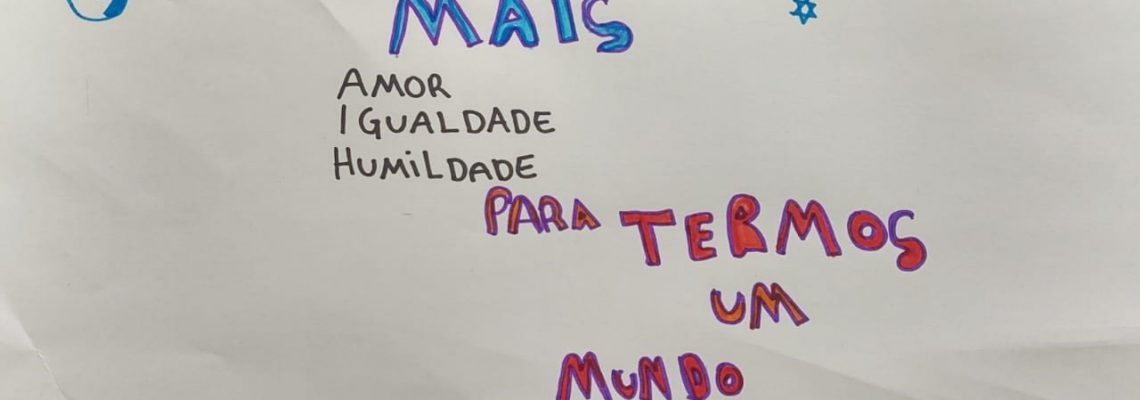 MAIS
AMOR
IGUALDADE
HUMILDADE
PARA TERMOS
UM
MUNDO